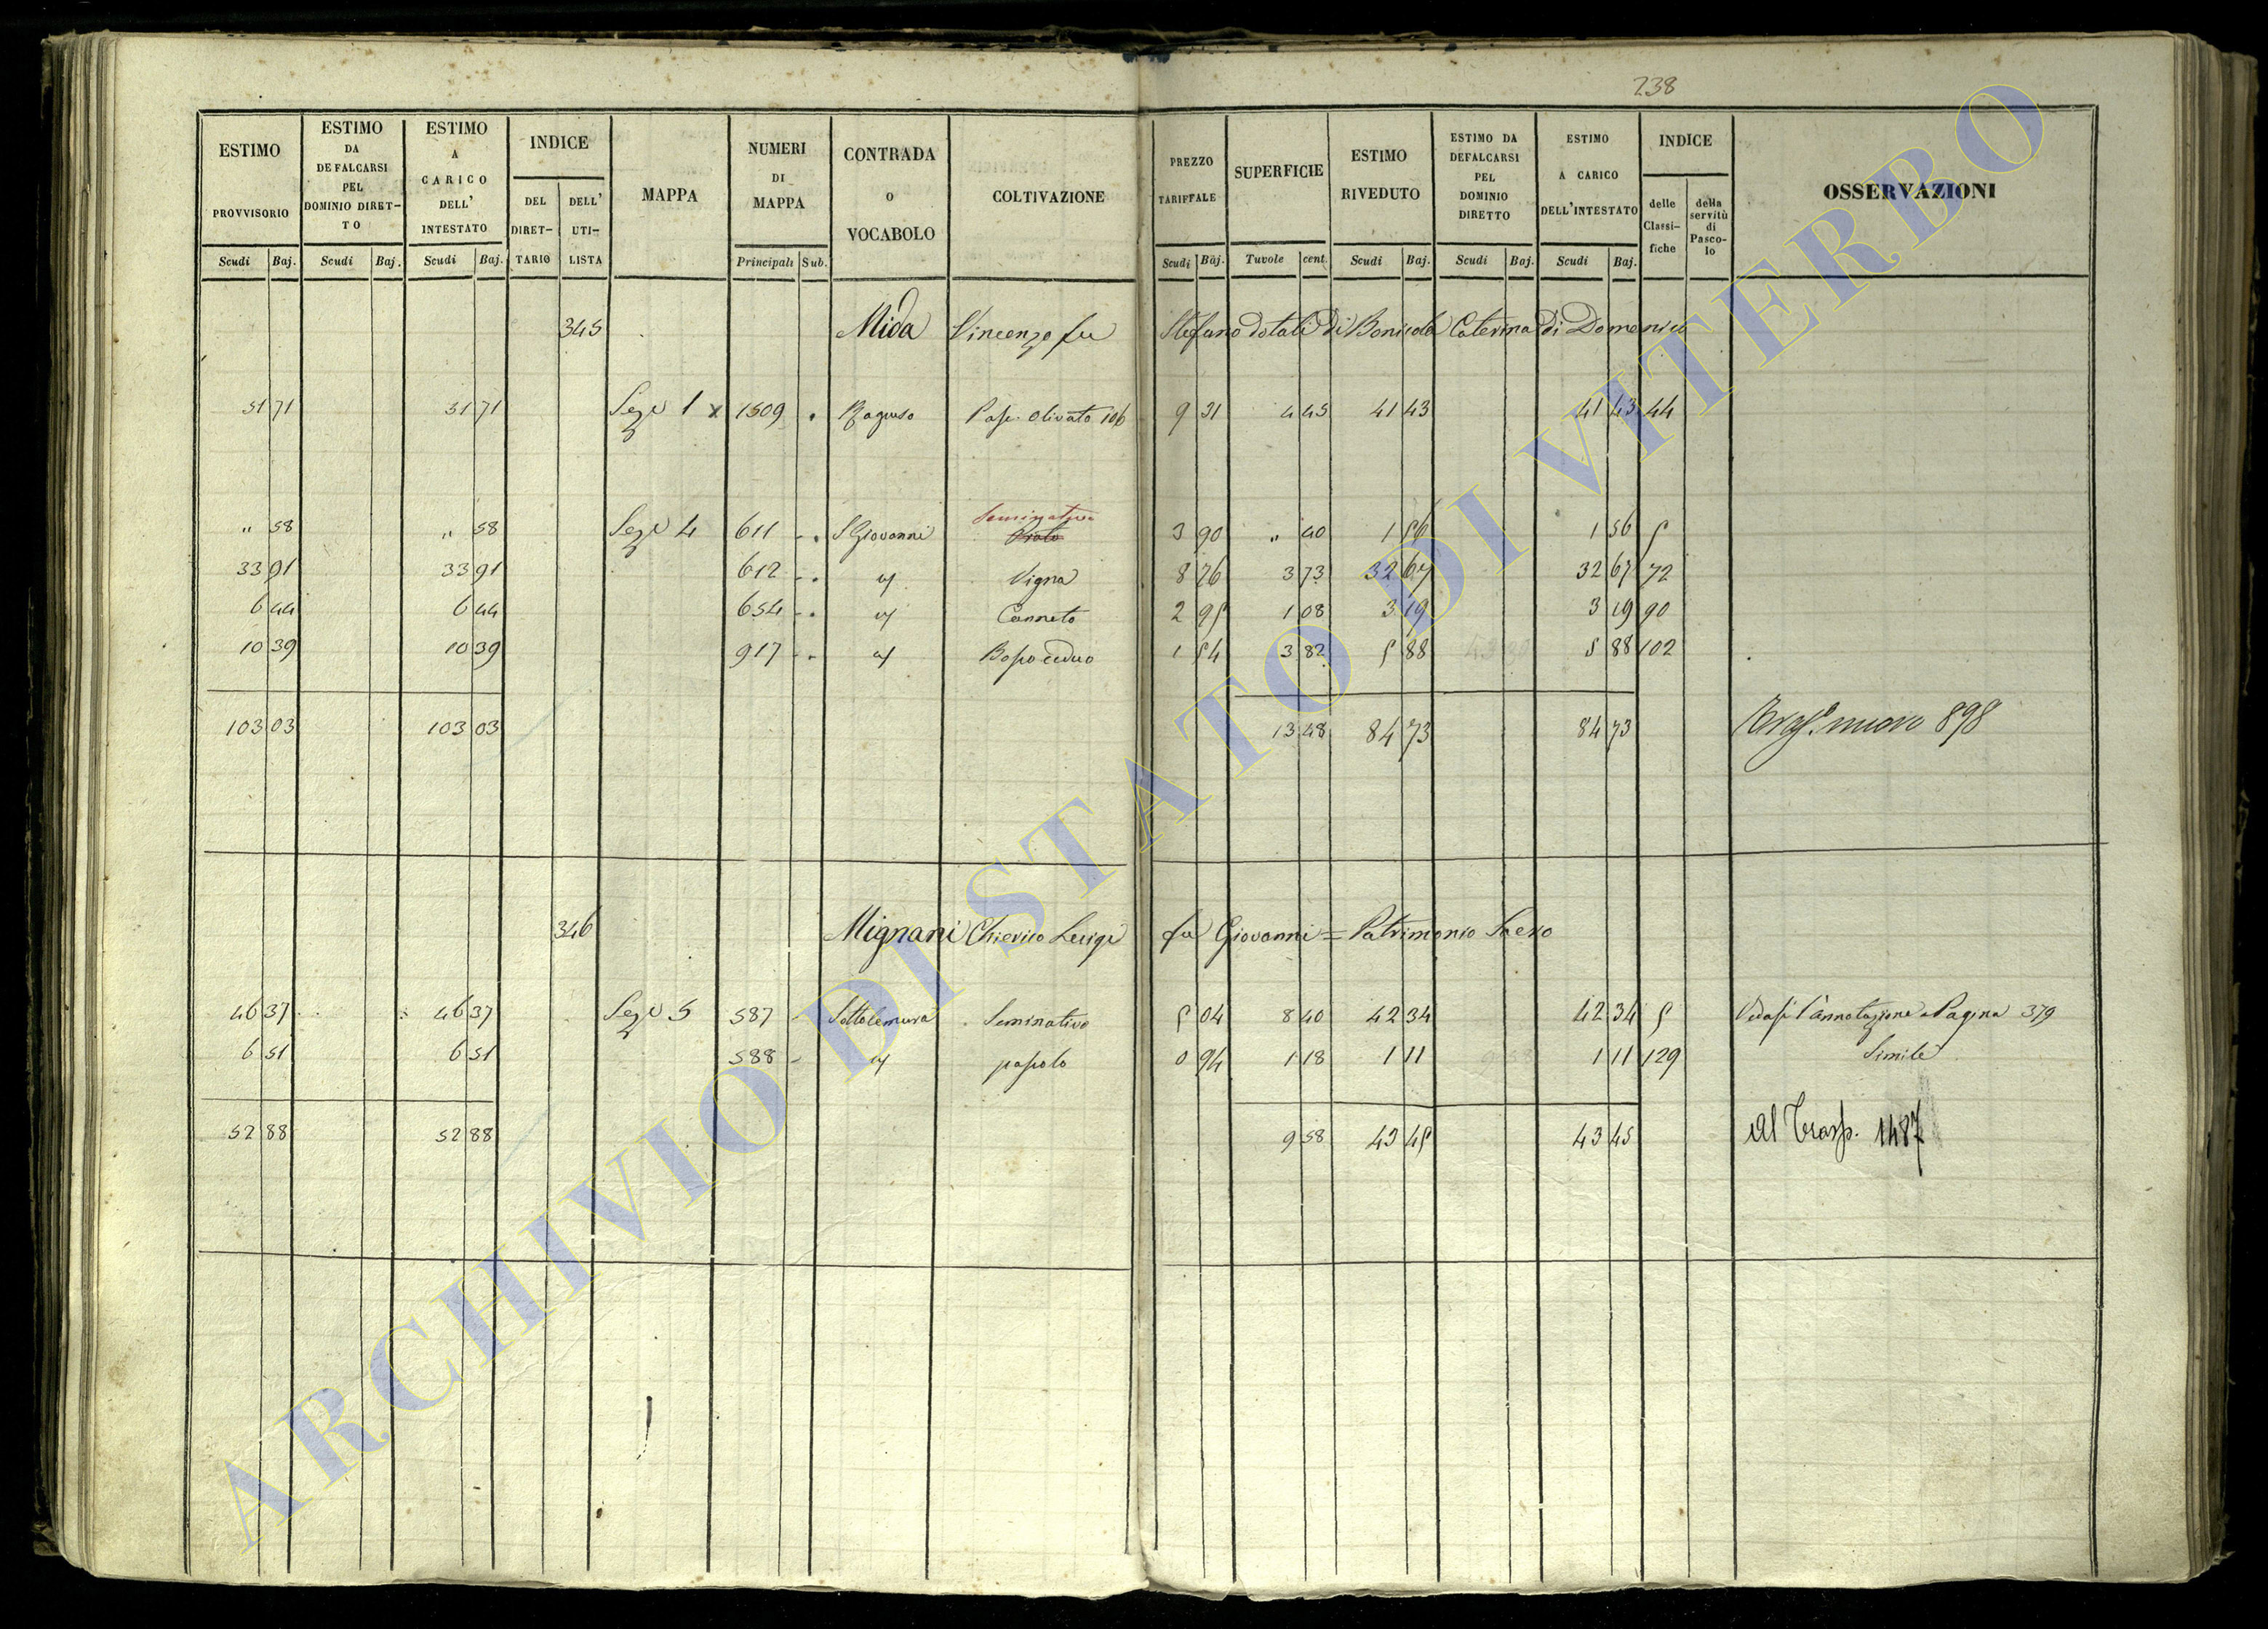 238
ESTIMO PROVVISORIO
ESTIMO DA DEFALCARSI PEL DOMINIO DIRETTO
ESTIMO A CARICO DELL' INTESTATO
INDICE
DEL DIRETTARIO
DELL' UTILISTA
MAPPA
NUMERI DI MAPPA
CONTRADA o VOCABOLO
COLTIVAZIONE
PREZZO TARIFFALE
SUPERFICIE
ESTIMO RIVEDUTO
ESTIMO DA DEFALCARSI PEL DOMINIO DIRETTO
ESTIMO A CARICO DELL'INTESTATO
INDICE
delle Classifiche
della servitù di Pascolo
OSSERVAZIONI
Scudi Baj. Scudi Baj. Scudi Baj. Principali Sub. Scudi Baj. Tavole cent. Scudi Baj. Scudi Baj. Scudi Baj.
345 Mida Vincenzo fu Stefano dotali di Bonicola Caterina di Domenico
51 71 51 71 Seze 1 x 1509 Raguso Pasc. Olivato 106 9 31 4 45 41 43 41 43 44
Seminativo
" 58 " 58 Seze 4 611 S Giovanni Prato 3 90 " 40 1 56 1 56 5
33 91 33 91 612 Vigna 8 76 3 73 32 67 32 67 72
6 44 6 44 654 Canneto 2 95 1 08 3 19 3 19 90
10 39 10 39 917 Bosco ceduo 1 54 3 82 5 88 5 88 102
103 03 103 03 13 48 84 73 84 73 nuovo 898
346 Mignani Chierico Luigi fu Giovanni = Patrimonio Sacro
46 37 46 37 Seze 5 587 Sottolemura Seminativo 5 04 8 40 42 34 42 34 5 Vedasi l'annotazione a Pagina 379
6 51 6 51 588 pascolo 0 94 1 18 1 11 1 11 129 Simile
52 88 52 88 9 58 43 45 43 45 Al Trasp. 1487
ARCHIVIO DI STATO DI VITERBO